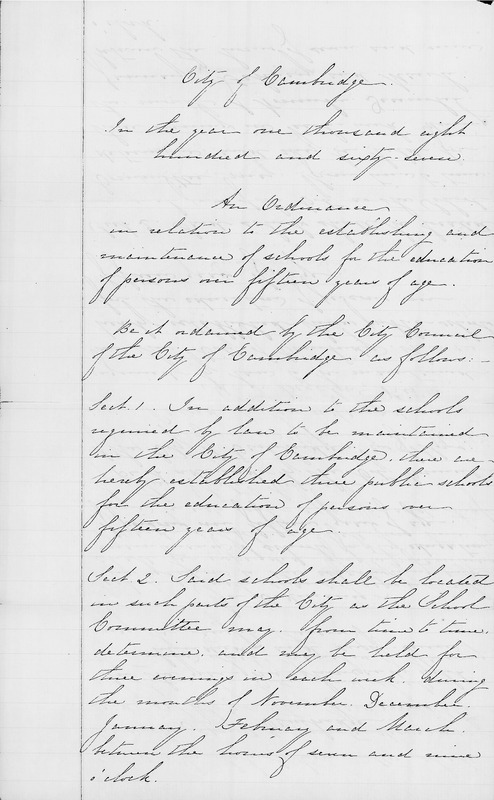 City of Cambridge.
In the year one thousand eight
hundred and sixty-seven.
An Ordinance
in relation to the establishing and
maintenance of schools for the education
of persons over fifteen years of age.
Be it ordained by the City Council
of the City of Cambridge as follows:-
Sect. 1. In addition to the schools
required by law to be maintained
in the City of Cambridge, there are
hereby established three public schools
for the education of persons over
fifteen years of age.
Sect 2. Said schools shall be located
in such parts of the City as the School
Committee may, from time to time,
determine, and may be held for
three evenings in each week, during
the months of November, December,
January, February and March,
between the hours of seven and nine
o'clock.